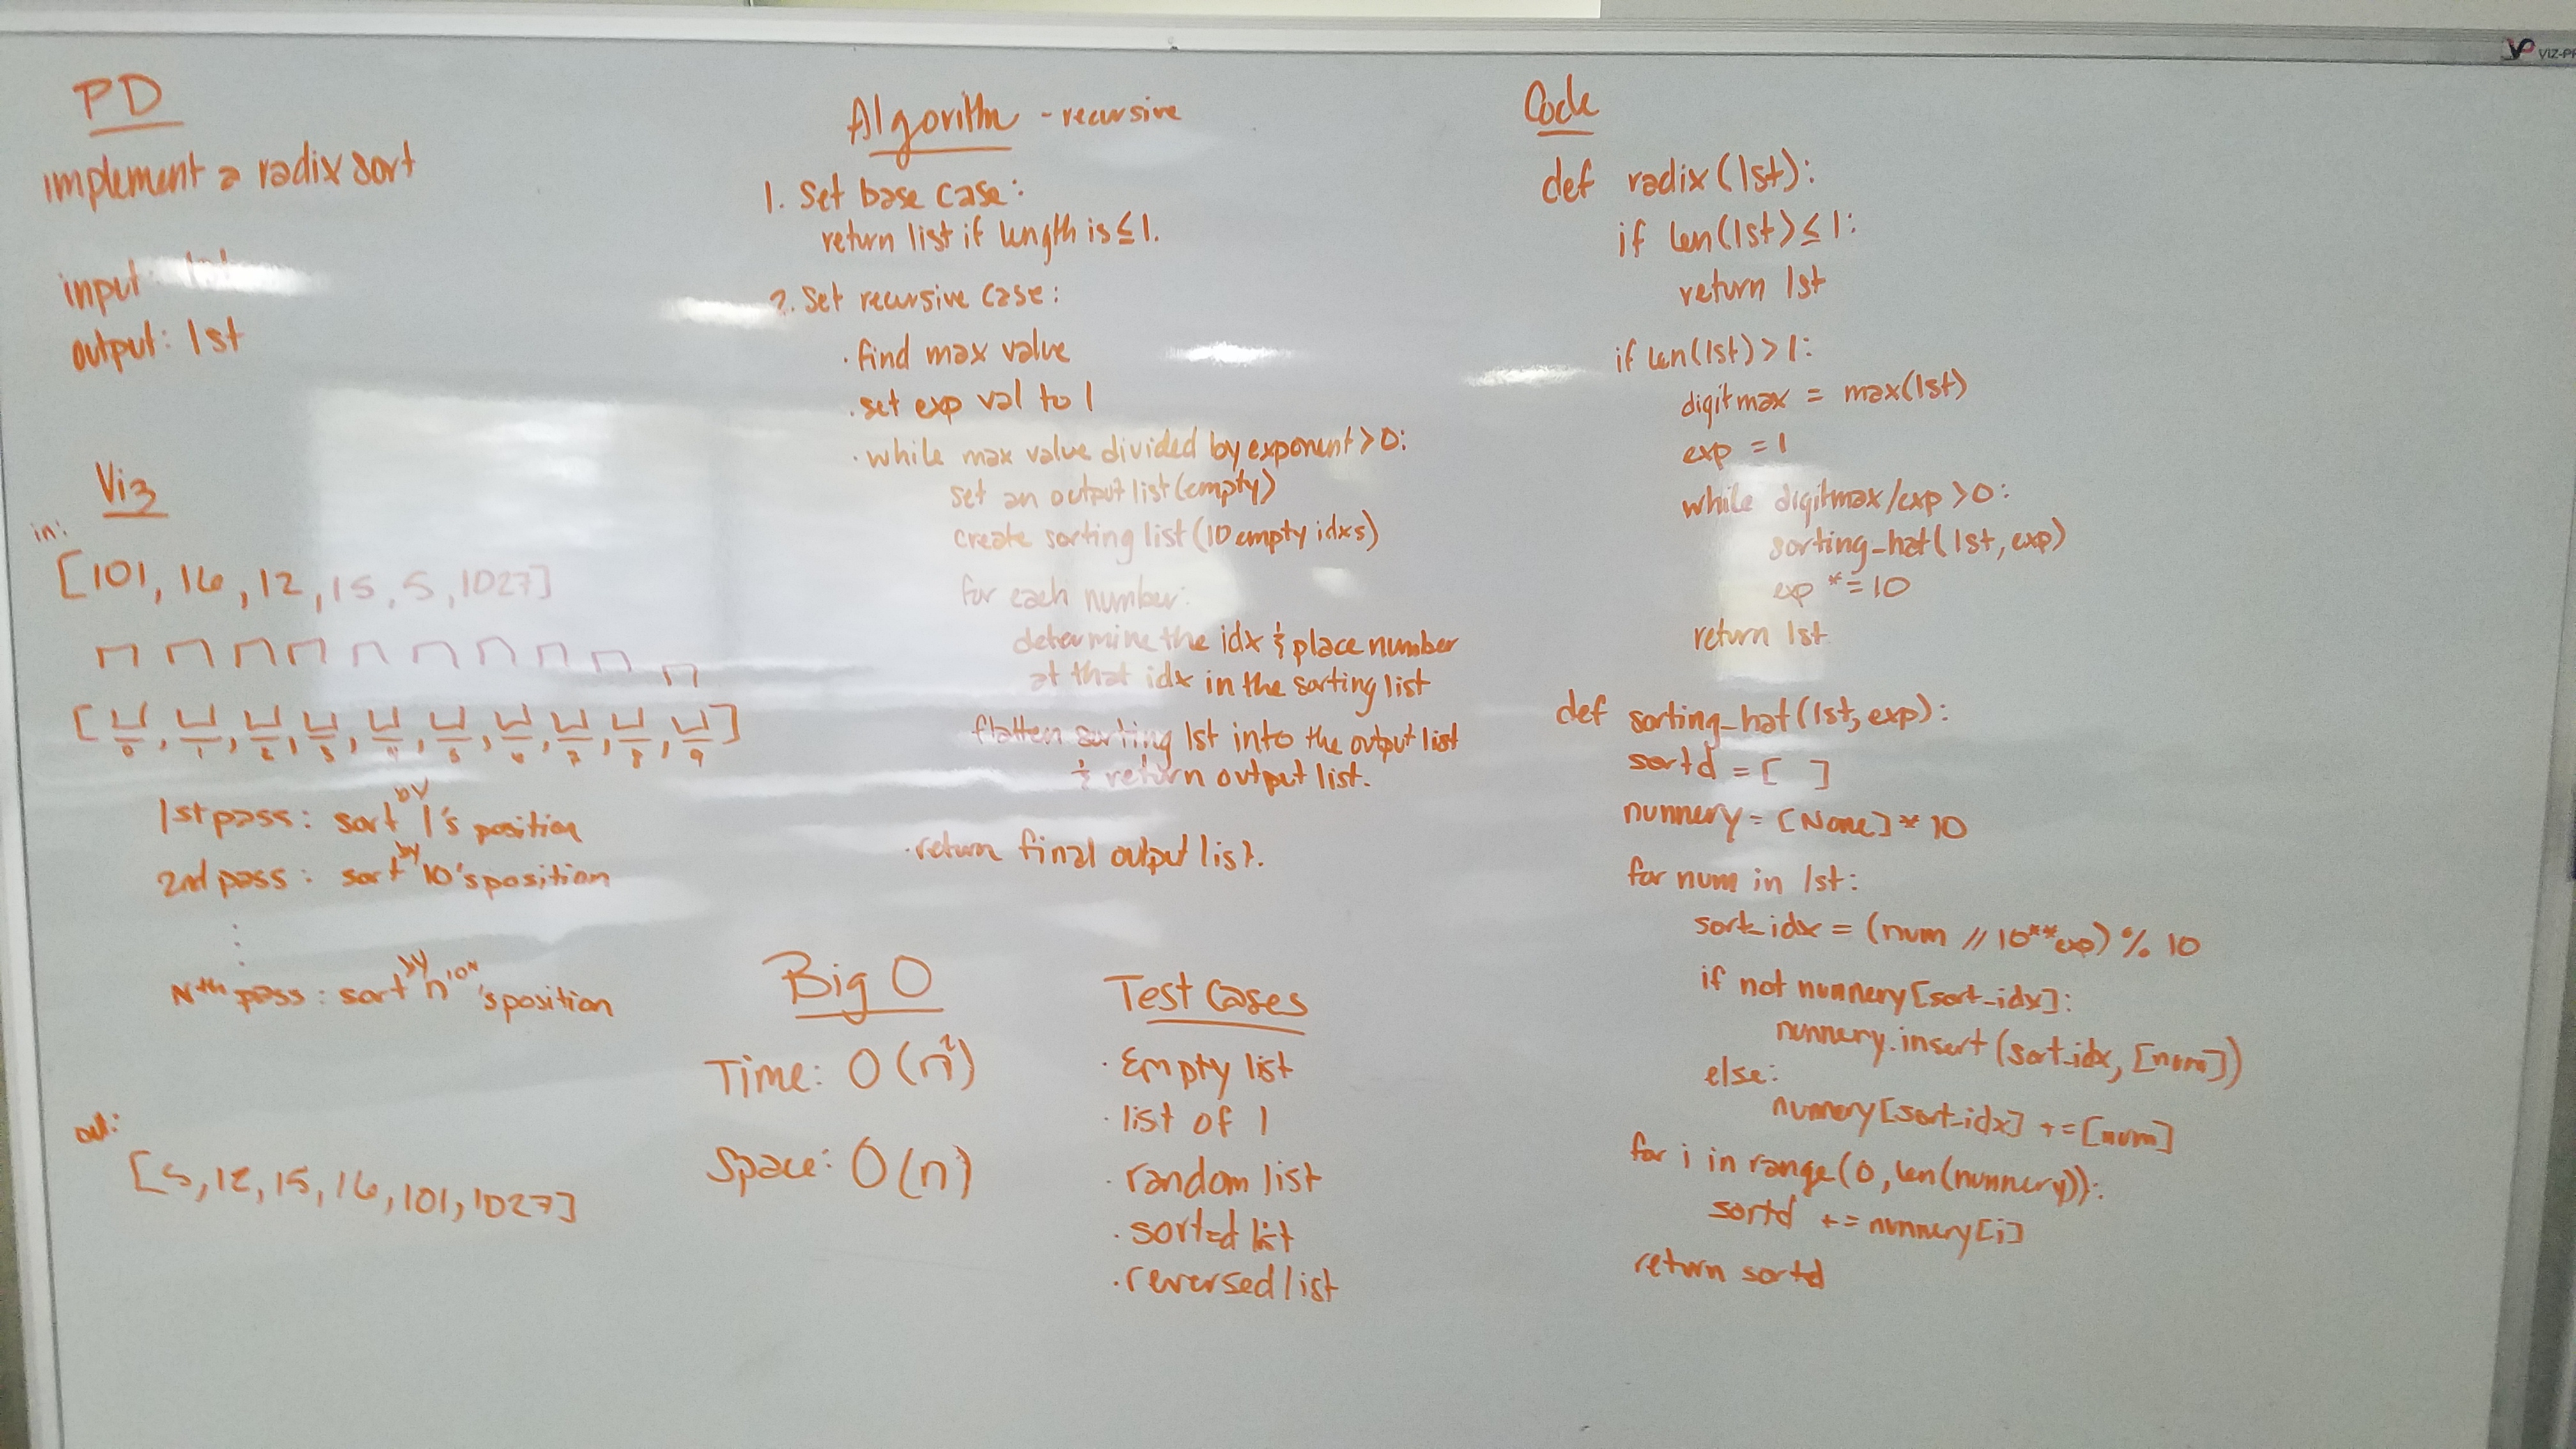 PD
implement a radix sort
input: lst
output: lst
Viz
in:
[101, 16, 12, 15, 5, 1027]
[ 0, 1, 2, 3, 4, 5, 6, 7, 8, 9 ]
1st pass: sort by 1's position
2nd pass: sort by 10's position
Nth pass: sort by n 10^N 's position
out:
[5, 12, 15, 16, 101, 1027]
Algorithm - recursive
1. Set base case:
return list if length is ≤ 1.
2. Set recursive case:
· find max value
· set exp val to 1
· while max value divided by exponent > 0:
set an output list (empty)
create sorting list (10 empty idxs)
for each number:
determine the idx & place number
at that idx in the sorting list
flatten sorting lst into the output list
& return output list.
· return final output list.
Big O
Time: O(n²)
Space: O(n)
Test Cases
· Empty list
· list of 1
· random list
· sorted list
· reversed list
Code
def radix(lst):
if len(lst) ≤ 1:
return lst
if len(lst) > 1:
digitmax = max(lst)
exp = 1
while digitmax/exp > 0:
sorting_hat(lst, exp)
exp *= 10
return lst
def sorting_hat(lst, exp):
sortd = [ ]
nunnery = [None] * 10
for num in lst:
sort_idx = (num // 10**exp) % 10
if not nunnery[sort_idx]:
nunnery.insert(sort_idx, [num])
else:
nunnery[sort_idx] += [num]
for i in range(0, len(nunnery)):
sortd += nunnery[i]
return sortd